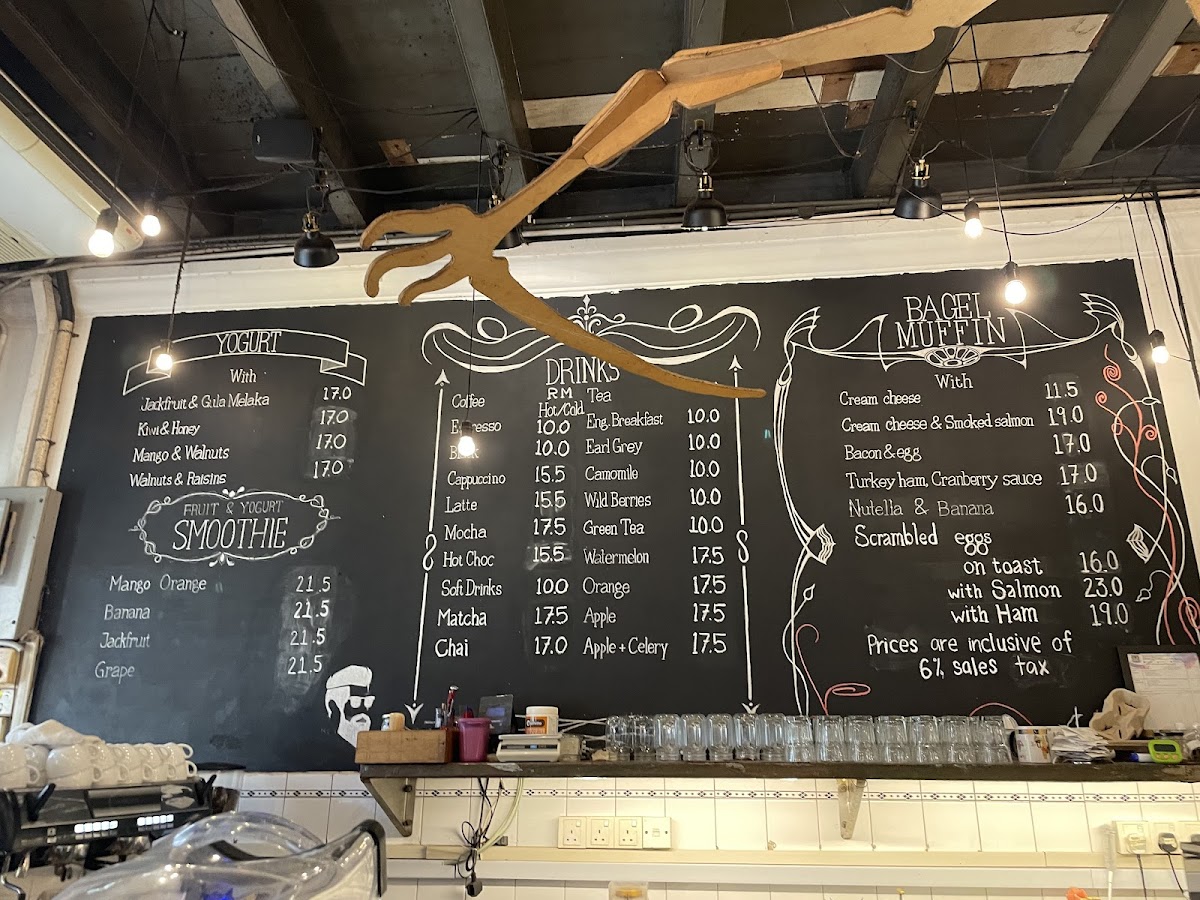 YOGURT
With
Jackfruit & Gula Melaka 17.0
Kiwi & Honey 17.0
Mango & Walnuts 17.0
Walnuts & Raisins 17.0
FRUIT & YOGURT
SMOOTHIE
Mango Orange 21.5
Banana 21.5
Jackfruit 21.5
Grape 21.5
DRINKS
RM
Coffee Hot/Cold
Espresso 10.0
10.0
Cappuccino 15.5
Latte 15.5
Mocha 17.5
Hot Choc 15.5
Soft Drinks 10.0
Matcha 17.5
Chai 17.0
Tea
Eng. Breakfast 10.0
Earl Grey 10.0
Camomile 10.0
Wild Berries 10.0
Green Tea 10.0
Watermelon 17.5
Orange 17.5
Apple 17.5
Apple + Celery 17.5
BAGEL
MUFFIN
With
Cream cheese 11.5
Cream cheese & Smoked salmon 19.0
Bacon & egg 17.0
Turkey ham, Cranberry sauce 17.0
Nutella & Banana 16.0
Scrambled eggs
on toast 16.0
with Salmon 23.0
with Ham 19.0
Prices are inclusive of
6% sales tax